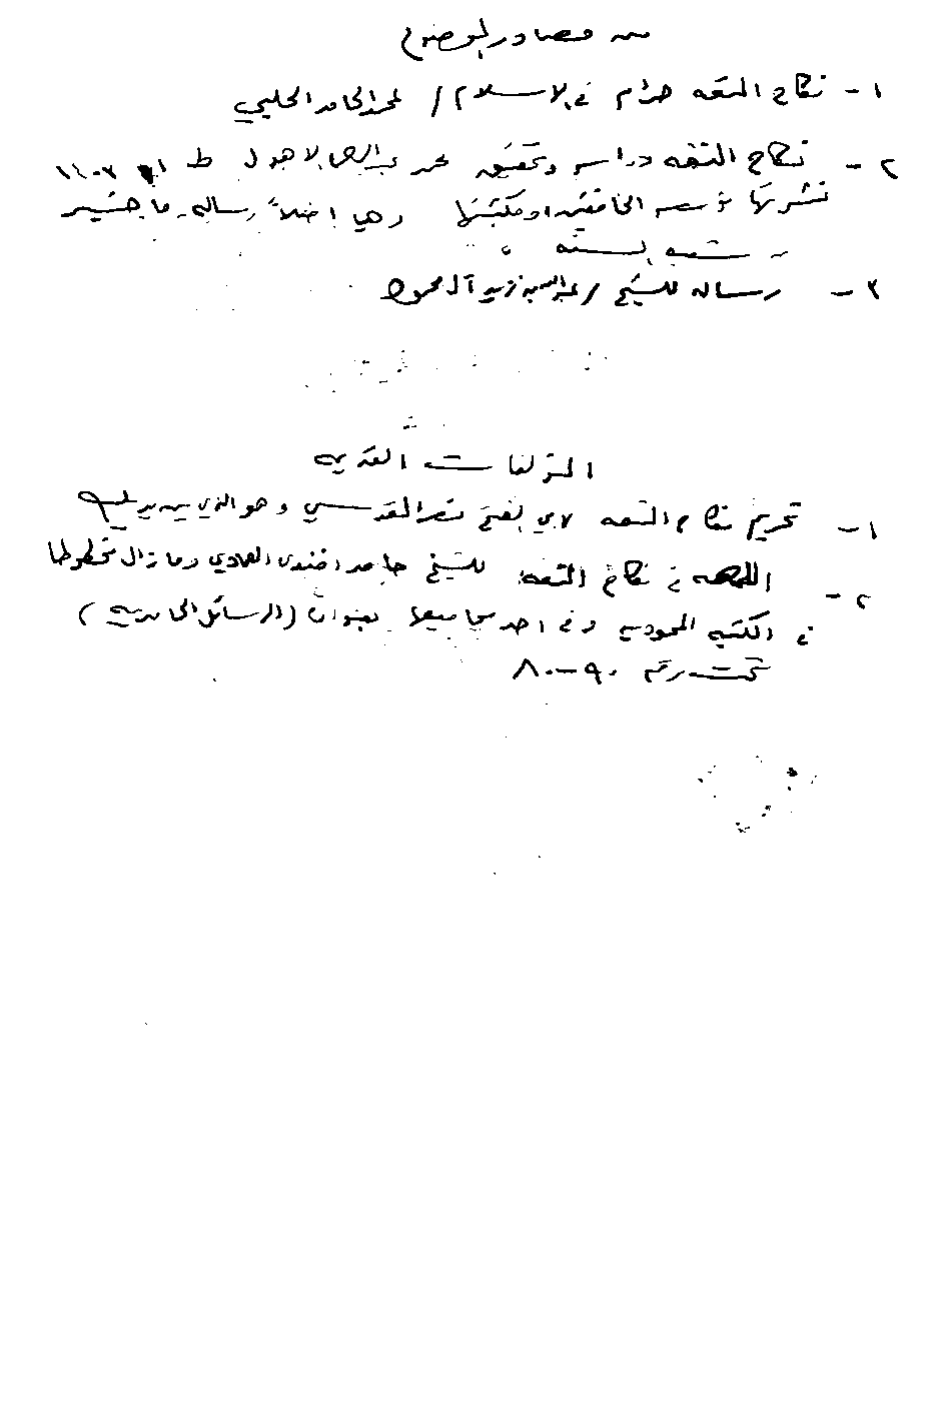 من مصادر الموضوع
١ - نكاح المتعة حرام في الاسلام / لمحمد الحامد الحلبي
٢ - نكاح المتعة دراسة وتحقيق محمد عبدالرحمن الاهدل ط
نشرتها مؤسسة الخافقين ومكتبتها وهي اصلاً رسالة ماجستير
شعبة السنة
٣ - رسالة للشيخ / عبدالله بن زيد آل محمود
المؤلفات القديمة
١ - تحريم نكاح المتعة لابي الفتح نصر المقدسي وهو الذي بين يديك
٢ - اللمعة في نكاح المتعة للشيخ حامد افندي العمادي وما زال مخطوطا
في المكتبة المحمودية وفي احد مجاميعها بعنوان (الرسائل الحامدية)
تحت رقم ٩٠ - ٨٠